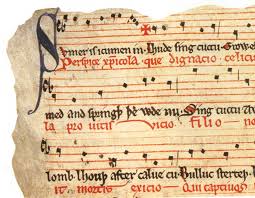 Sumer is icumen in. Lhude sing cuccu. Groweþ
Perspice xpicola. que dignacio. celicus
med and springþ þe wde nu. Sing cuccu. Awe
la pro uitis vicio. Filio
lomb. lhouþ after calue cu. Bulluc sterteþ.
it. mortis exicio. Qui captiuos